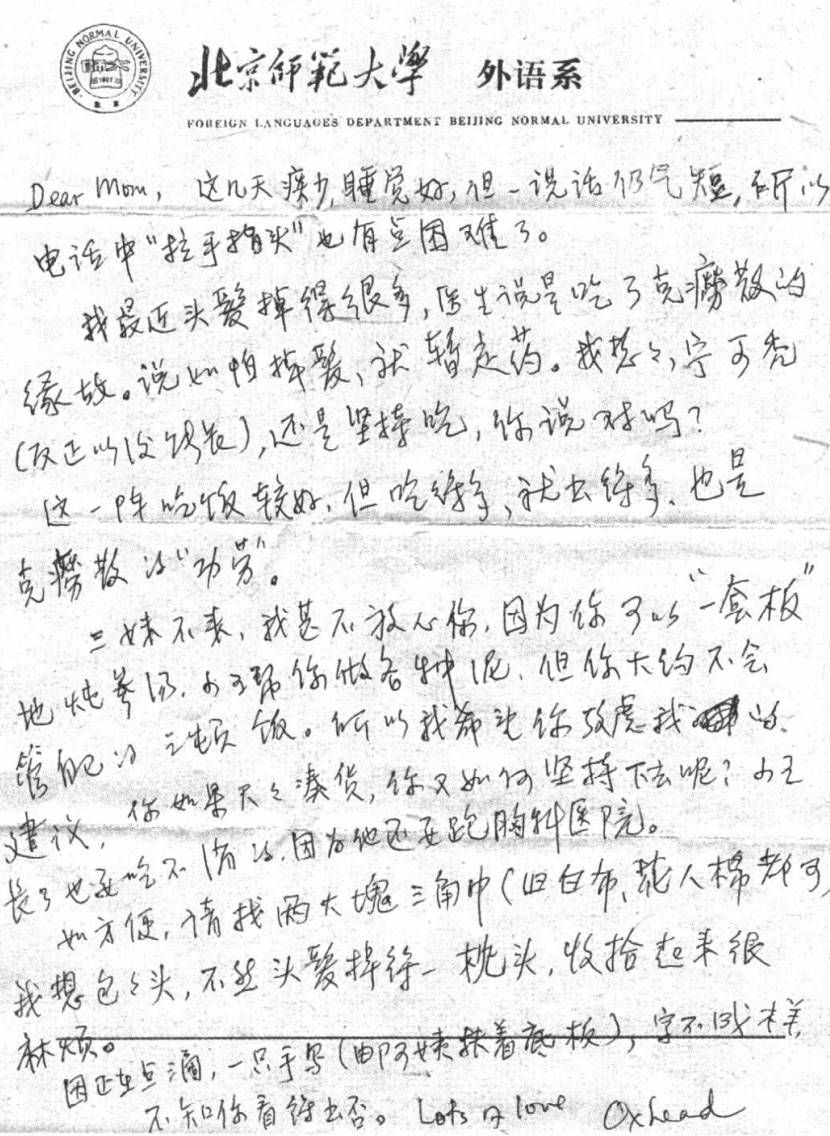 BEIJING NORMAL UNIVERSITY
1902
北京师范大学 外语系
FOREIGN LANGUAGES DEPARTMENT BEIJING NORMAL UNIVERSITY
Dear Mom, 这几天痰少,睡觉好,但一说话仍气短,所以
电话中“拉手指头”也有点困难了。
我最近头髮掉得很多,医生说是吃了克痨散的
缘故。说如怕掉髮,就暂走药。我想々,宁可秃
(反正以后能长),还是坚持吃,你说对吗?
这一阵吃饭较好,但吃得多,就出得多,也是
克痨散的“功劳”。
二妹不来,我甚不放心你,因为你可以“一套板”
地炖参汤,小王帮你做各种泥,但你大约不会
管自己的三顿饭。所以我希望你考虑我的
建议,你如果天々凑货,你又如何坚持下去呢?小王
长了也要吃不消的,因为他还要跑胸科医院。
如方便,请找两大块三角巾(旧白布、花人棉都可),
我想包々头,不然头髮掉得一枕头,收拾起来很
麻烦。
因正在点滴,一只手写(由阿姨扶着底板),字不成样,
不知你看得出否。 Lots of love Oxhead